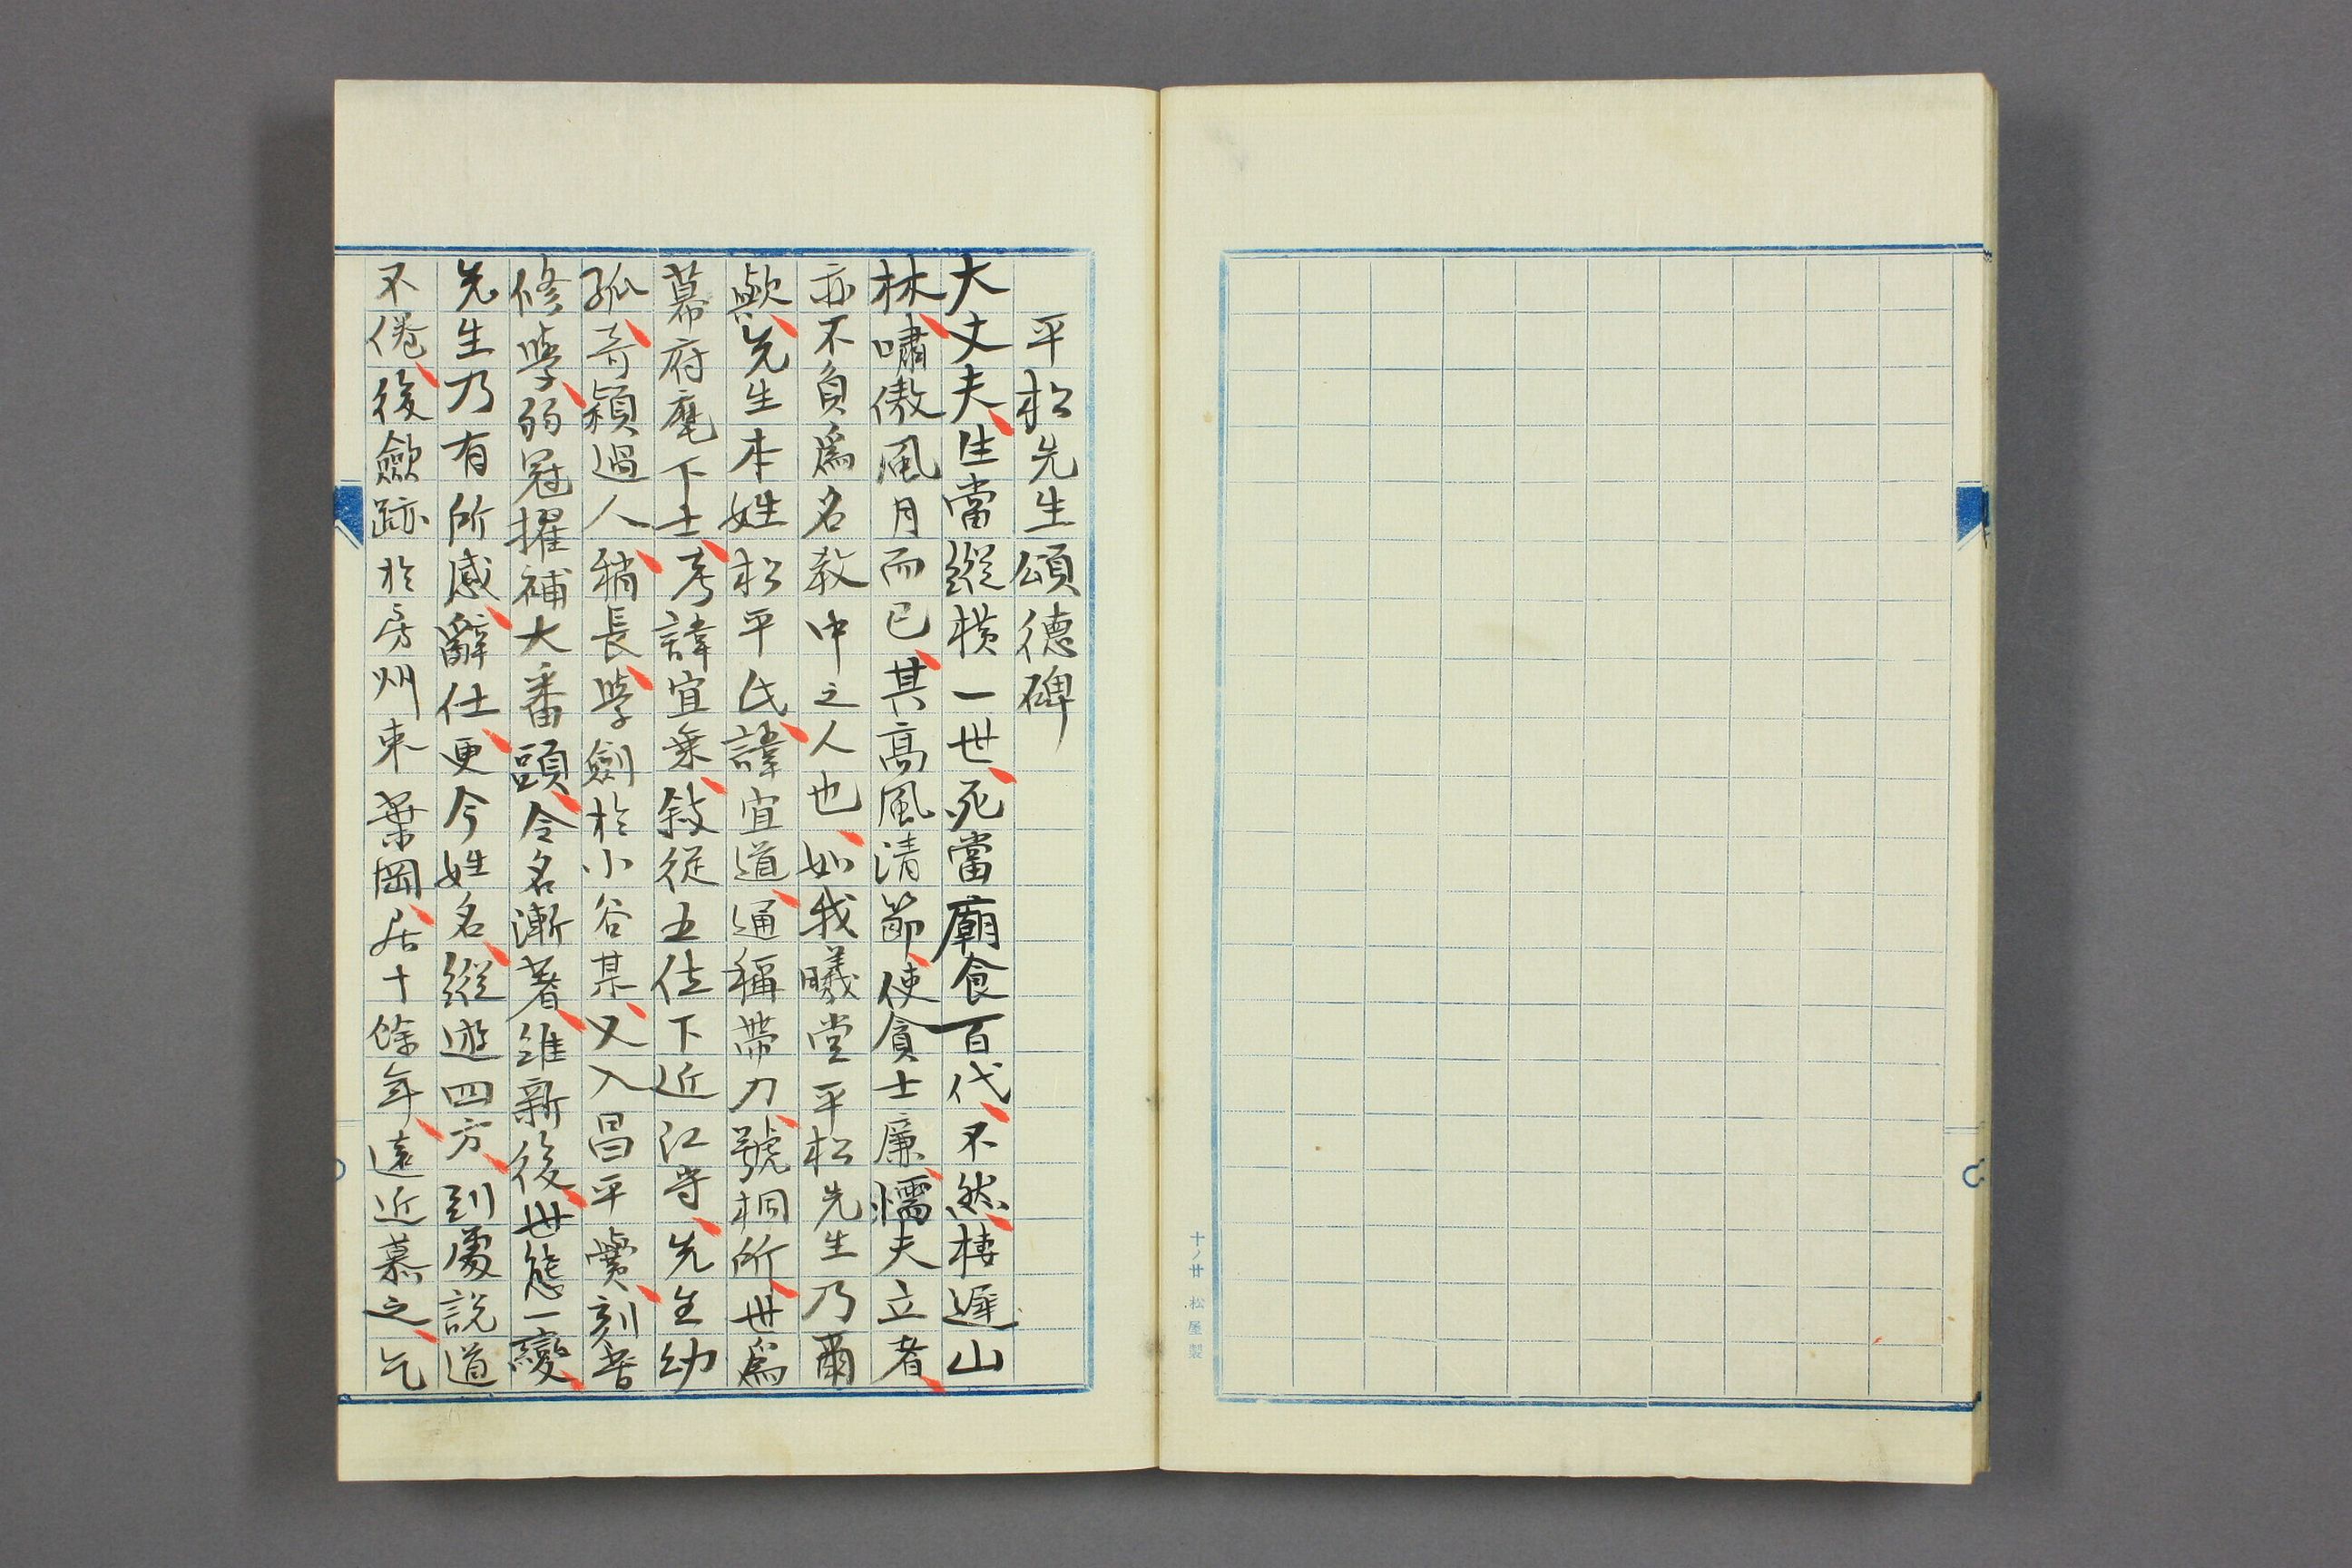 平松先生頌德碑
大丈夫、生當縱横一世、死當廟食百代、不然、棲遲山
林、嘯傲風月而已、其高風淸節、使貪士廉、懦夫立者、
亦不負爲名教中之人也、如我曦堂平松先生乃爾
歟、先生本姓松平氏、諱宜道、通稱帶刀、號桐所、世爲
幕府麾下士、考諱宜乘、敍從五位下近江守、先生幼
孤、奇穎過人、稍長、學劍於小谷某、又入昌平黌、刻苦
修學、弱冠擢補大番頭、令名漸著、維新後、世態一變、
先生乃有所感、辭仕、更今姓名、縱遊四方、到處説道
不倦、後歛跡於房州東葉岡、居十餘年、遠近慕之、乞
十ノ廿 松屋製